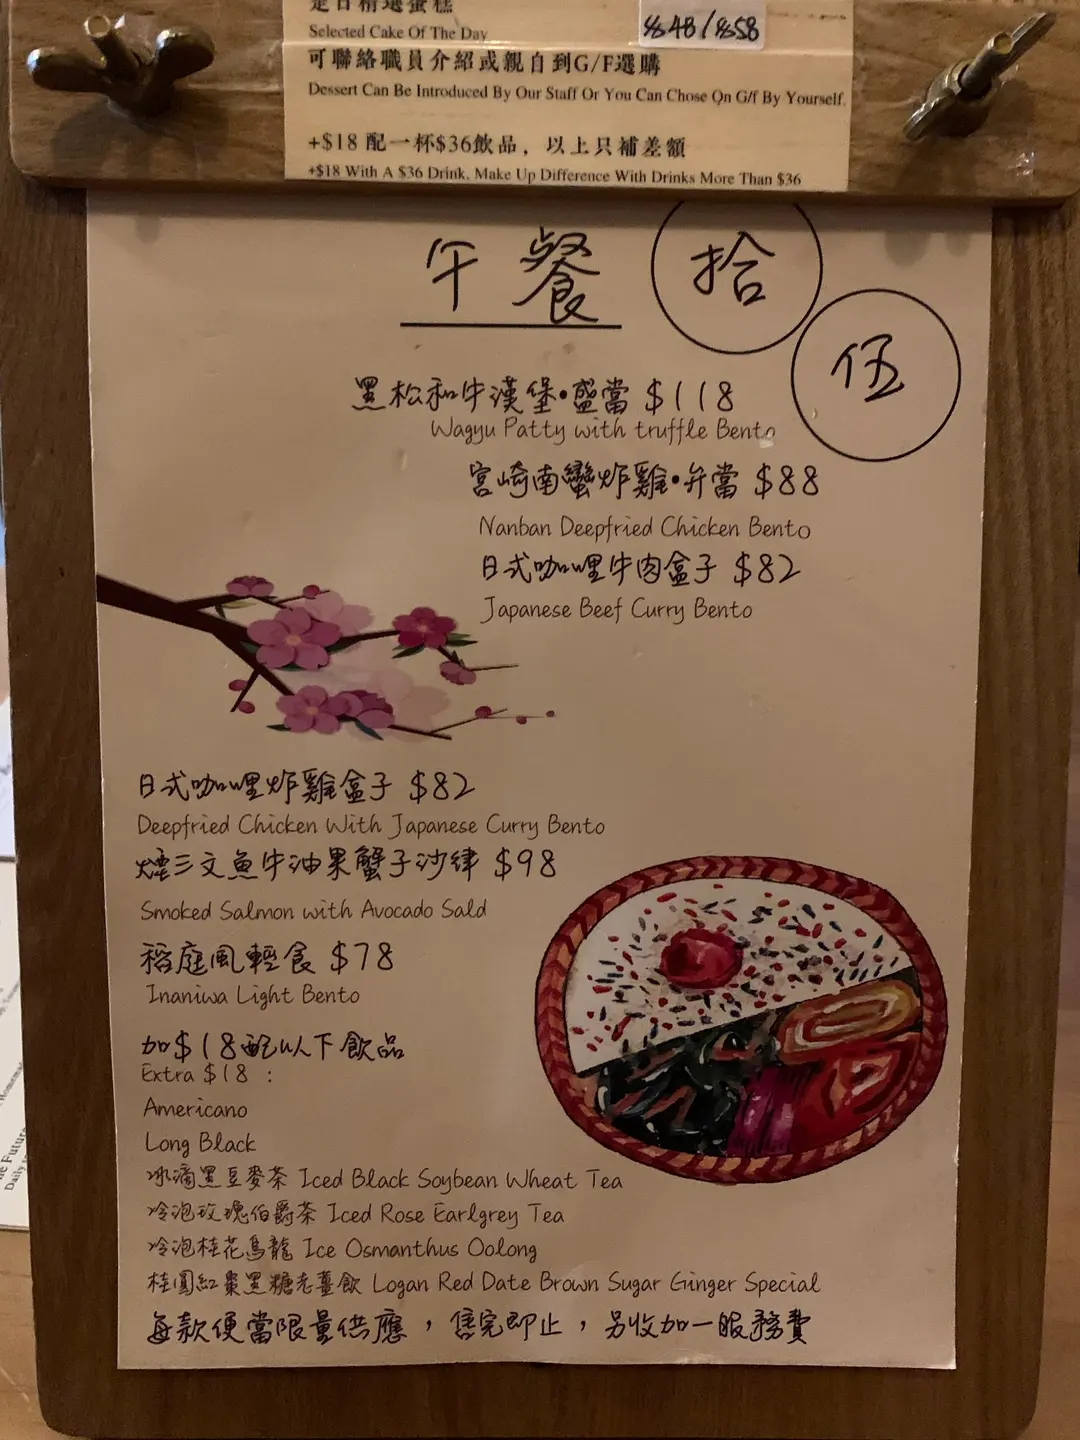 是日精選蛋糕
Selected Cake Of The Day
$48/$58
可聯絡職員介紹或親自到G/F選購
Dessert Can Be Introduced By Our Staff Or You Can Chose On G/f By Yourself.
+$18 配一杯$36飲品，以上只補差額
+$18 With A $36 Drink, Make Up Difference With Drinks More Than $36
午餐
拾
伍
黑松和牛漢堡•盛當 $118
Wagyu Patty with truffle Bento
宮崎南蠻炸雞•弁當 $88
Nanban Deepfried Chicken Bento
日式咖哩牛肉盒子 $82
Japanese Beef Curry Bento
日式咖哩炸雞盒子 $82
Deepfried Chicken With Japanese Curry Bento
煙三文魚牛油果蟹子沙律 $98
Smoked Salmon with Avocado Sald
稻庭風輕食 $78
Inaniwa Light Bento
加$18配以下飲品
Extra $18 :
Americano
Long Black
冰滴黑豆麥茶 Iced Black Soybean Wheat Tea
冷泡玫瑰伯爵茶 Iced Rose Earlgrey Tea
冷泡桂花烏龍 Ice Osmanthus Oolong
桂圓紅棗黑糖老薑飲 Logan Red Date Brown Sugar Ginger Special
每款便當限量供應，售完即止，另收加一服務費